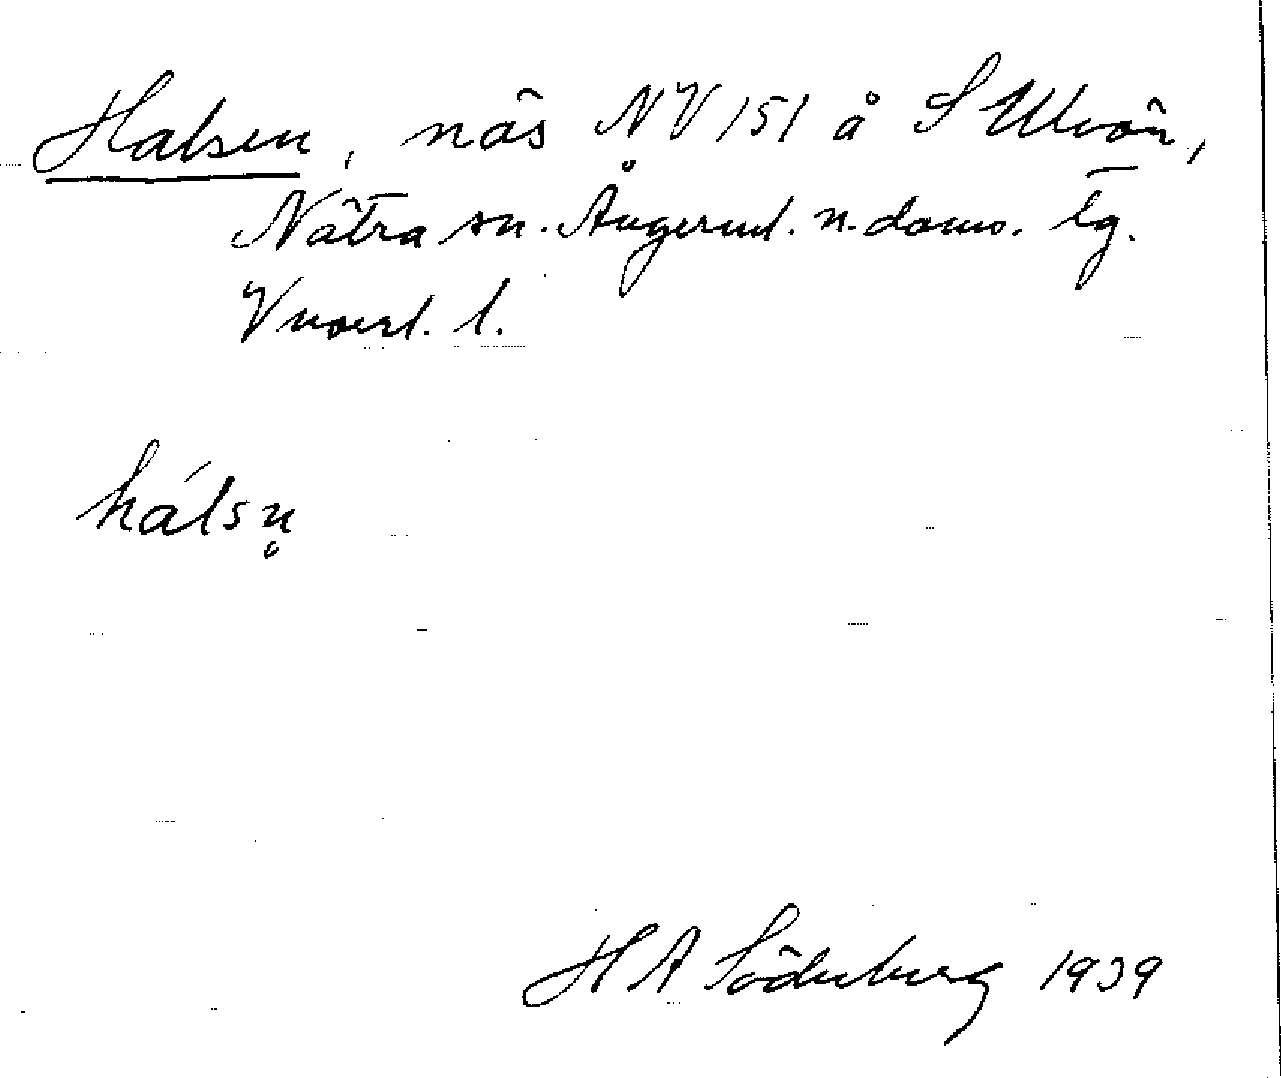 Halsen, näs NV 151 å S Ulvön,
Nätra sn. Ångerml. n. doms. tg.
Vnorrl. l.
hálsn̥
H A Söderberg 1939